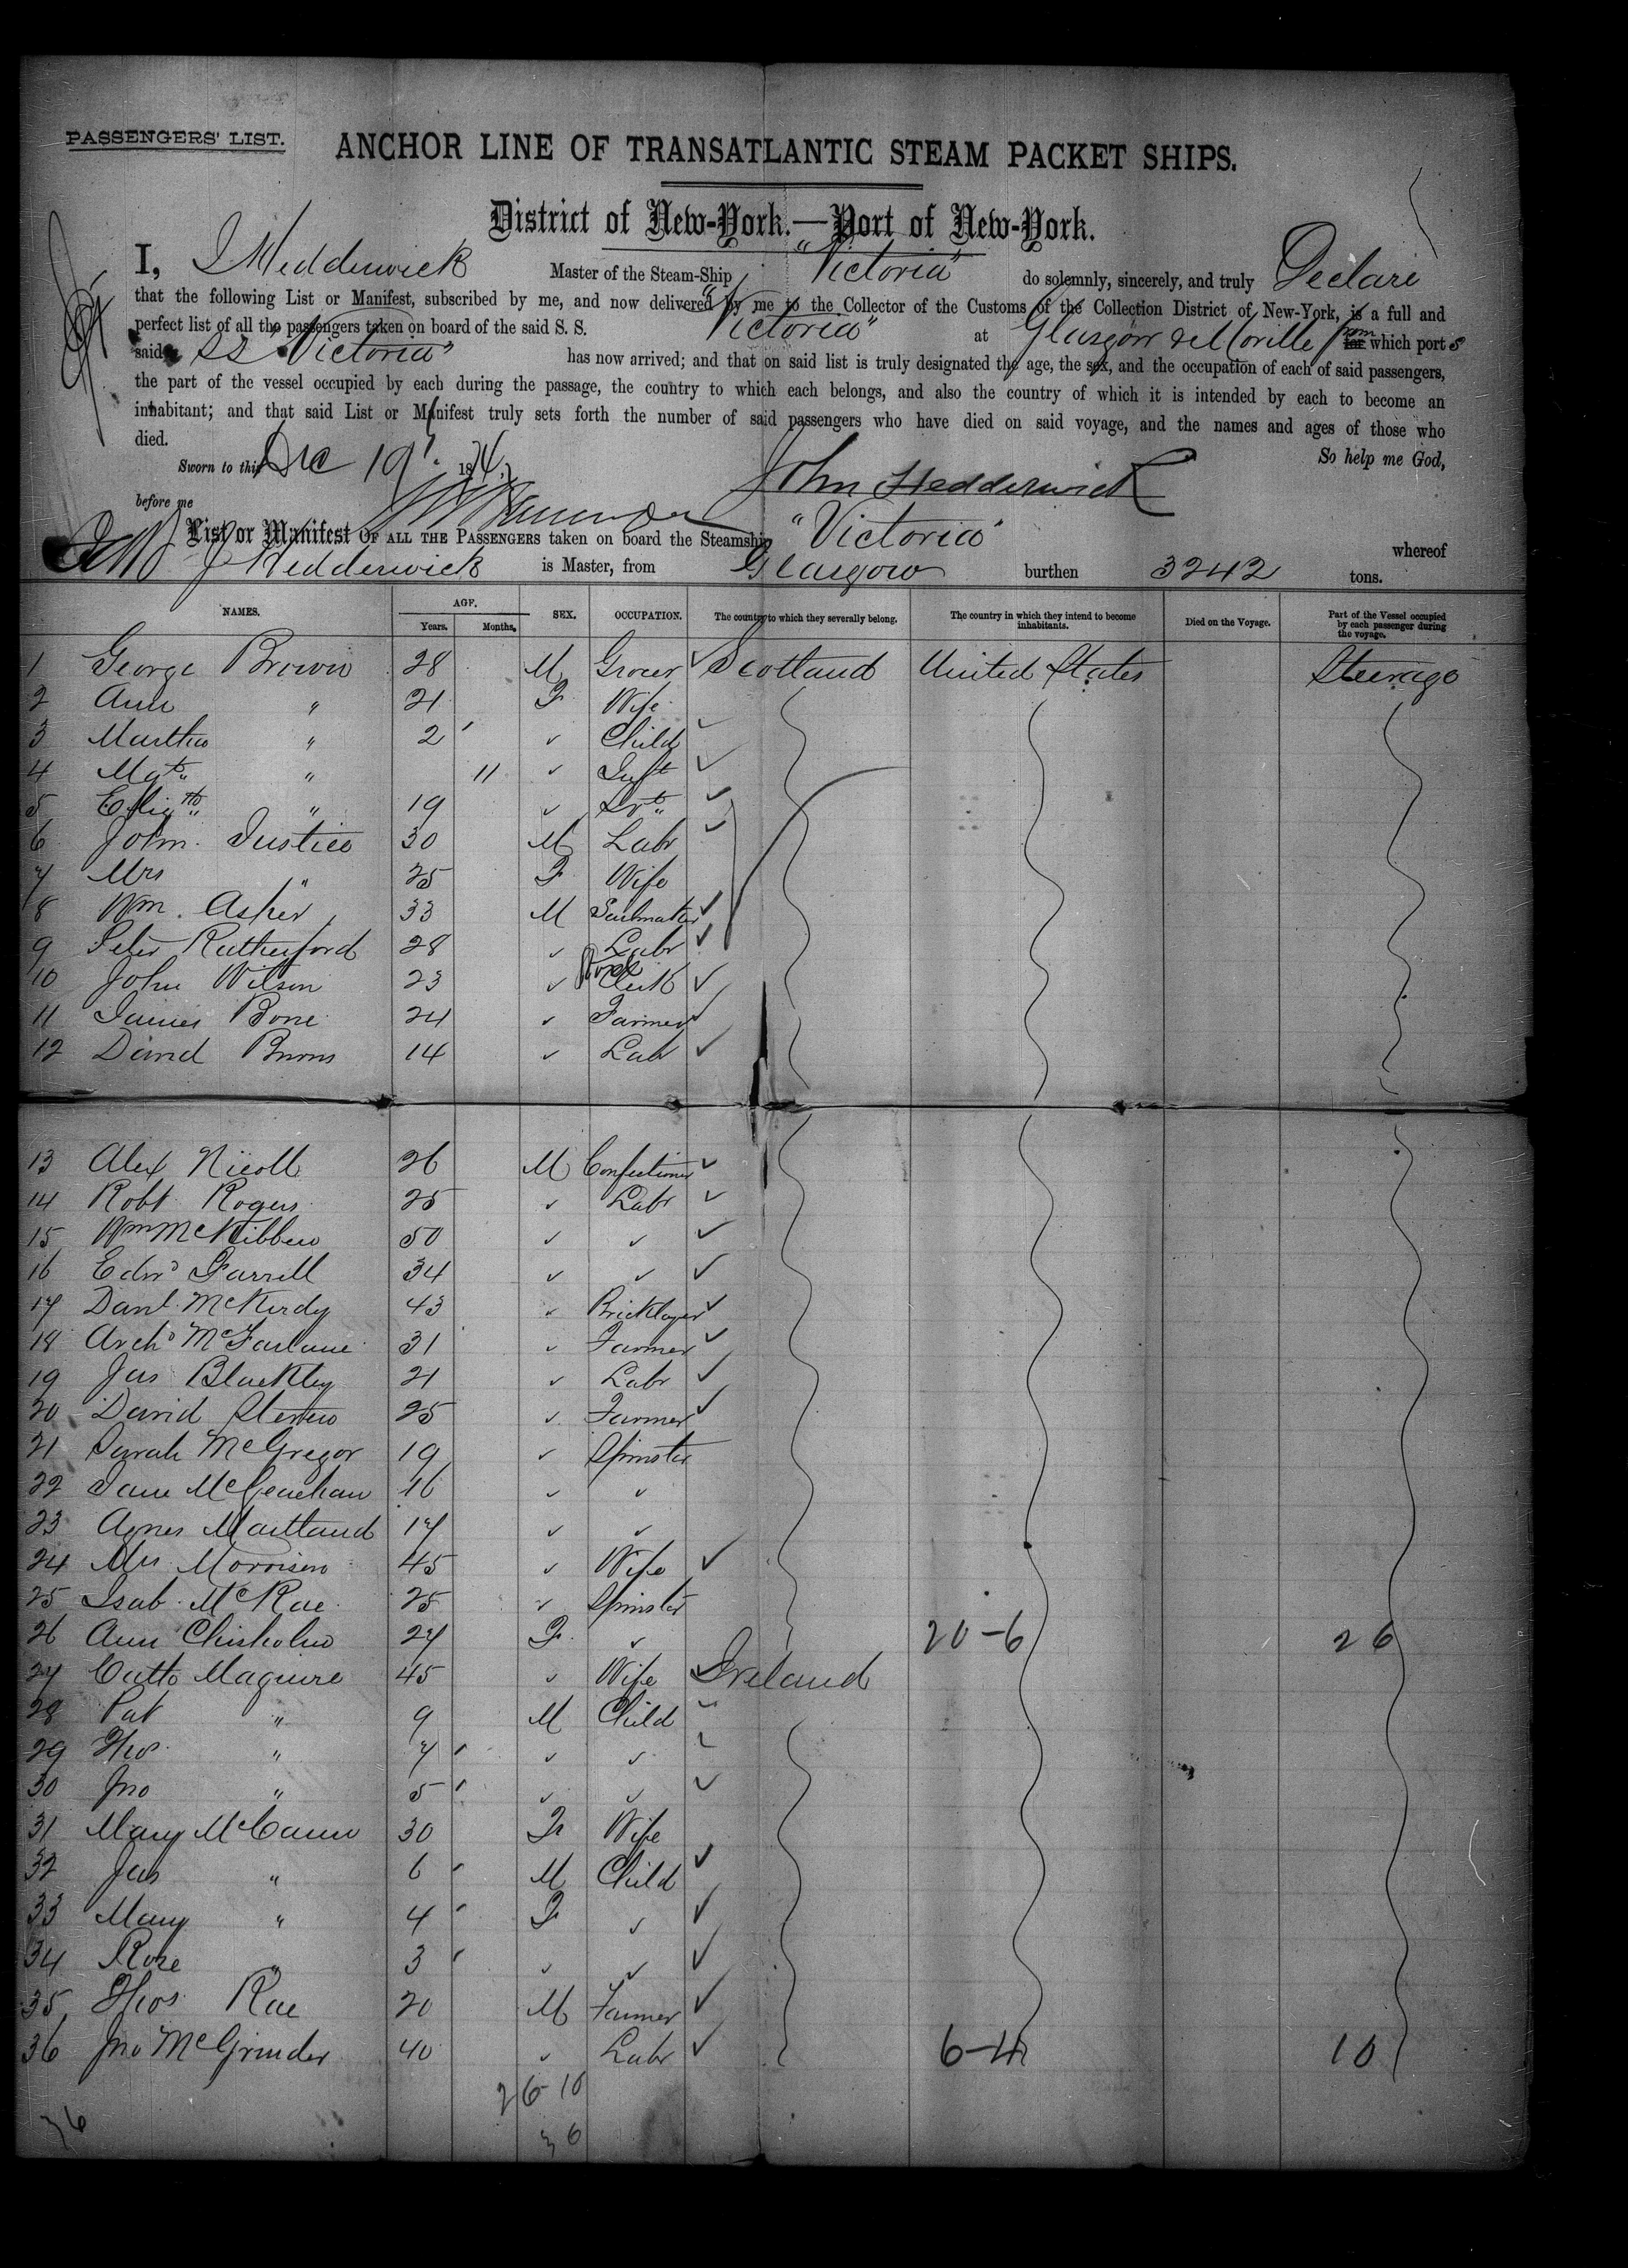 PASSENGERS' LIST.
ANCHOR LINE OF TRANSATLANTIC STEAM PACKET SHIPS.
District of New-York.—Port of New-York.
I, J Hedderwick Master of the Steam-Ship "Victoria" do solemnly, sincerely, and truly Declare
that the following List or Manifest, subscribed by me, and now delivered by me to the Collector of the Customs of the Collection District of New-York, is a full and
perfect list of all the passengers taken on board of the said S. S. "Victoria" at Glasgow & Moville from which ports
said SS "Victoria" has now arrived; and that on said list is truly designated the age, the sex, and the occupation of each of said passengers,
the part of the vessel occupied by each during the passage, the country to which each belongs, and also the country of which it is intended by each to become an
inhabitant; and that said List or Manifest truly sets forth the number of said passengers who have died on said voyage, and the names and ages of those who
died. So help me God,
Sworn to this Dec 19 1874 John Hedderwick
before me
List or Manifest OF ALL THE PASSENGERS taken on board the Steamship "Victoria" whereof
J Hedderwick is Master, from Glasgow burthen 3242 tons.
NAMES. AGE. Years. Months. SEX. OCCUPATION. The country to which they severally belong. The country in which they intend to become inhabitants. Died on the Voyage. Part of the Vessel occupied by each passenger during the voyage.
1 George Brown 28 M Grocer Scotland United States Steerage
2 Ann " 21 F Wife
3 Martha " 2 ✓ Child
4 Mgt " 11 ✓ Inft
5 Elizth " 19 ✓ Srt
6 John Justice 30 M Labr
7 Mrs " 25 F Wife
8 Wm. Asher 33 M Sailmaker
9 Peter Rutherford 28 ✓ Labr
10 John Wilson 23 ✓ Clerk
11 James Bone 24 ✓ Farmer
12 David 14 ✓ Labr
13 Alex Nicoll 26 M Confectioner
14 Robt Rogers 25 ✓ Labr
15 Wm McKibben 50 ✓ ✓
16 Edwd Farrell 34 ✓ ✓
17 Danl. McKurdy 43 ✓ Bricklayer
18 Archd McFarlane 31 ✓ Farmer
19 Jas Blackley 21 ✓ Labr
20 David 25 ✓ Farmer
21 Sarah McGregor 19 ✓ Spinster
22 Jane McGeachan 16 ✓ ✓
23 Agnes Maitland 17 ✓ ✓
24 Mrs Morrison 45 ✓ Wife
25 Isab. McRae 25 ✓ Spinster
26 Ann Chisholm 27 F ✓ 20-6 26
27 Cath Maguire 45 ✓ Wife Ireland
28 Pat " 9 M Child
29 Thos " 7 ✓ ✓
30 Jno " 5 ✓ ✓
31 Mary McCann 30 F Wife
32 Jas " 6 M Child
33 Mary " 4 F ✓
34 Rose " 3 ✓ ✓
35 Thos Rae 20 M Farmer
36 Jno McGrinder 40 ✓ Labr 6-4 10
26-10
36 36